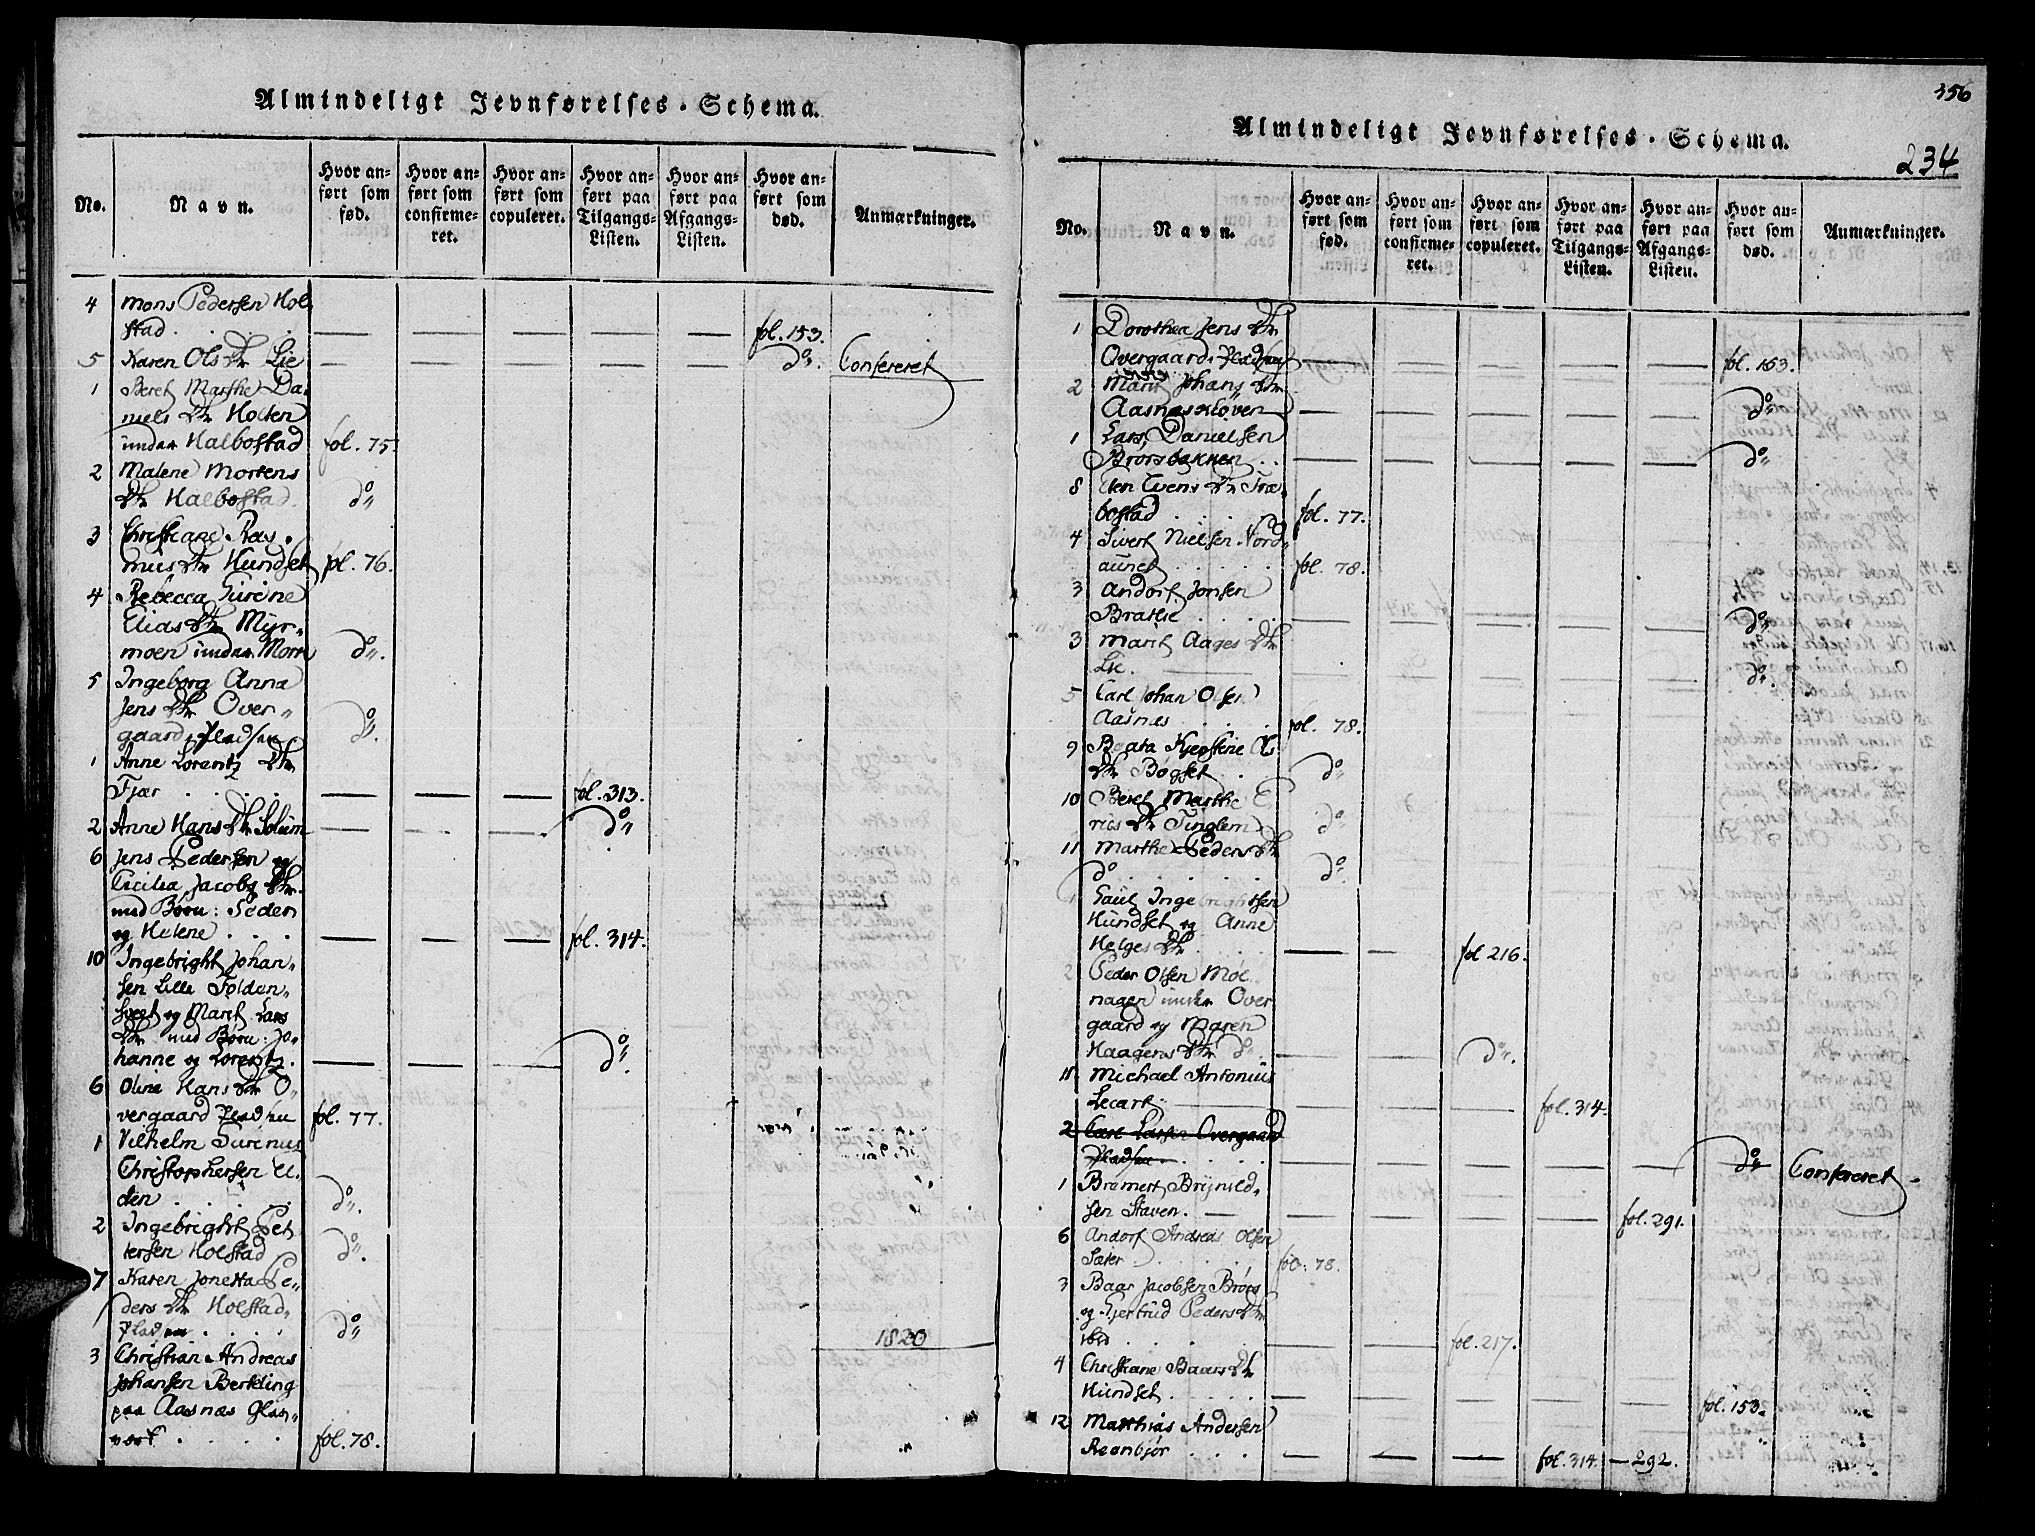 Almindeligt Jevnførelses-Schema.
No.
Navn.
Hvor an-
ført som
fød.
Hvor an-
ført som
confirme-
ret.
Hvor an-
ført som
copuleret.
Hvor an-
ført paa
Tilgangs-
Listen.
Hvor an-
ført paa
Afgangs-
Listen.
Hvor an-
ført som
død.
Anmærkninger.
4 Mons Pedersen Hol
stad . . . . — — — — — fol. 153.
5 Karen Ols Dtr Lie — — — — — do. Confereret
1 Beret Marthe Da-
niels Dtr Holten
under Halbostad fol. 75.
2 Malene Mortens
Dtr Halbostad do
3 Christiane Ras-
mus Dtr Hundset fol. 76.
4 Rebecca Turine
Elias Dtr Myr-
moen under Morre do.
5 Ingeborg Anna
Jens Dtr Over-
gaards pladsen do.
1 Anne Lorentz Dtr
Fjær . . . . — — — fol. 313.
2 Anne Hans Dtr Solum — — — do
6 Jens Pedersen og
Cicilia Jacobs Dtr
med Børn: Peder
og Helene . . . — — — fol. 314.
10 Ingebright Johan-
sen Lille Folden-
sveet og Marit Lars
Dtr med Børn: Jo-
hanne og Lorentz. — — — do.
6 Oline Hans Dtr O-
vergaard pladsen fol. 77.
1 Vilhelm Turinus
Christophersen El-
den . . . . do.
2 Ingebright Pet-
tersen Holstad do.
7 Karen Jonetta Pe-
ders Dtr Holstad-
pladsen . . . . do
1820
3 Christian Andreas
Johansen Bertling
paa Aasnæs Glas-
værk . . . . fol. 78.
356
Almindeligt Jevnførelses-Schema.
234
No.
Navn.
Hvor an-
ført som
fød.
Hvor an-
ført som
confirme-
ret.
Hvor an-
ført som
copuleret.
Hvor an-
ført paa
Tilgangs-
Listen.
Hvor an-
ført paa
Afgangs-
Listen.
Hvor an-
ført som
død.
Anmærkninger.
1 Dorothea Jens Dtr
Overgaards pladsen — — — — — fol. 153.
2 Marit Johans Dtr
Aasnæskløven — — — — — do
1 Lars Danielsen
Brørsbakken . . — — — — — do
8 Elen Evens Dtr Træ-
bostad . . . . fol. 77.
4 Sivert Nielsen Nord-
aunet . . . . fol. 78.
3 Andorf Jonsen
Bratlie . . . — — — — — do
3 Marit Aages Dtr
Lie. do
5 Carl Johan Olsen
Aasnæs . . . . fol. 78.
9 Beata Kjerstine Ols
Dtr Bøgset . . do
10 Beret Marthe E-
rics Dtr Tinglem do
11 Marthe Peders Dtr
do . . . . do.
1 Paul Ingebrightsen
Hundset og Anne
Helges Dtr . . . — — fol 216.
2 Peder Olsen Møl
nagen under Over
gaard og Maren
Haagens Dtr do. — — do.
11 Michael Antonius
Lecart. — — — fol. 314.
2 Carl Larsen Overgaard
pladsen . . . . — — — — — do Confereret
1 Bremert Brynild-
sen Staven. — — — — — fol. 291.
6 Andorf Andreas Olsen
Sæter . . . . fol. 78.
3 Baar Jacobsen Brørs
og Gjertrud Peders Dtr
ibid . . . . — — fol. 217.
4 Christiane Baars Dtr
Hundset . . . . — — — — — fol. 153.
12 Matthias Andersen
Reenbjør . . . — — — fol. 314. — 292.